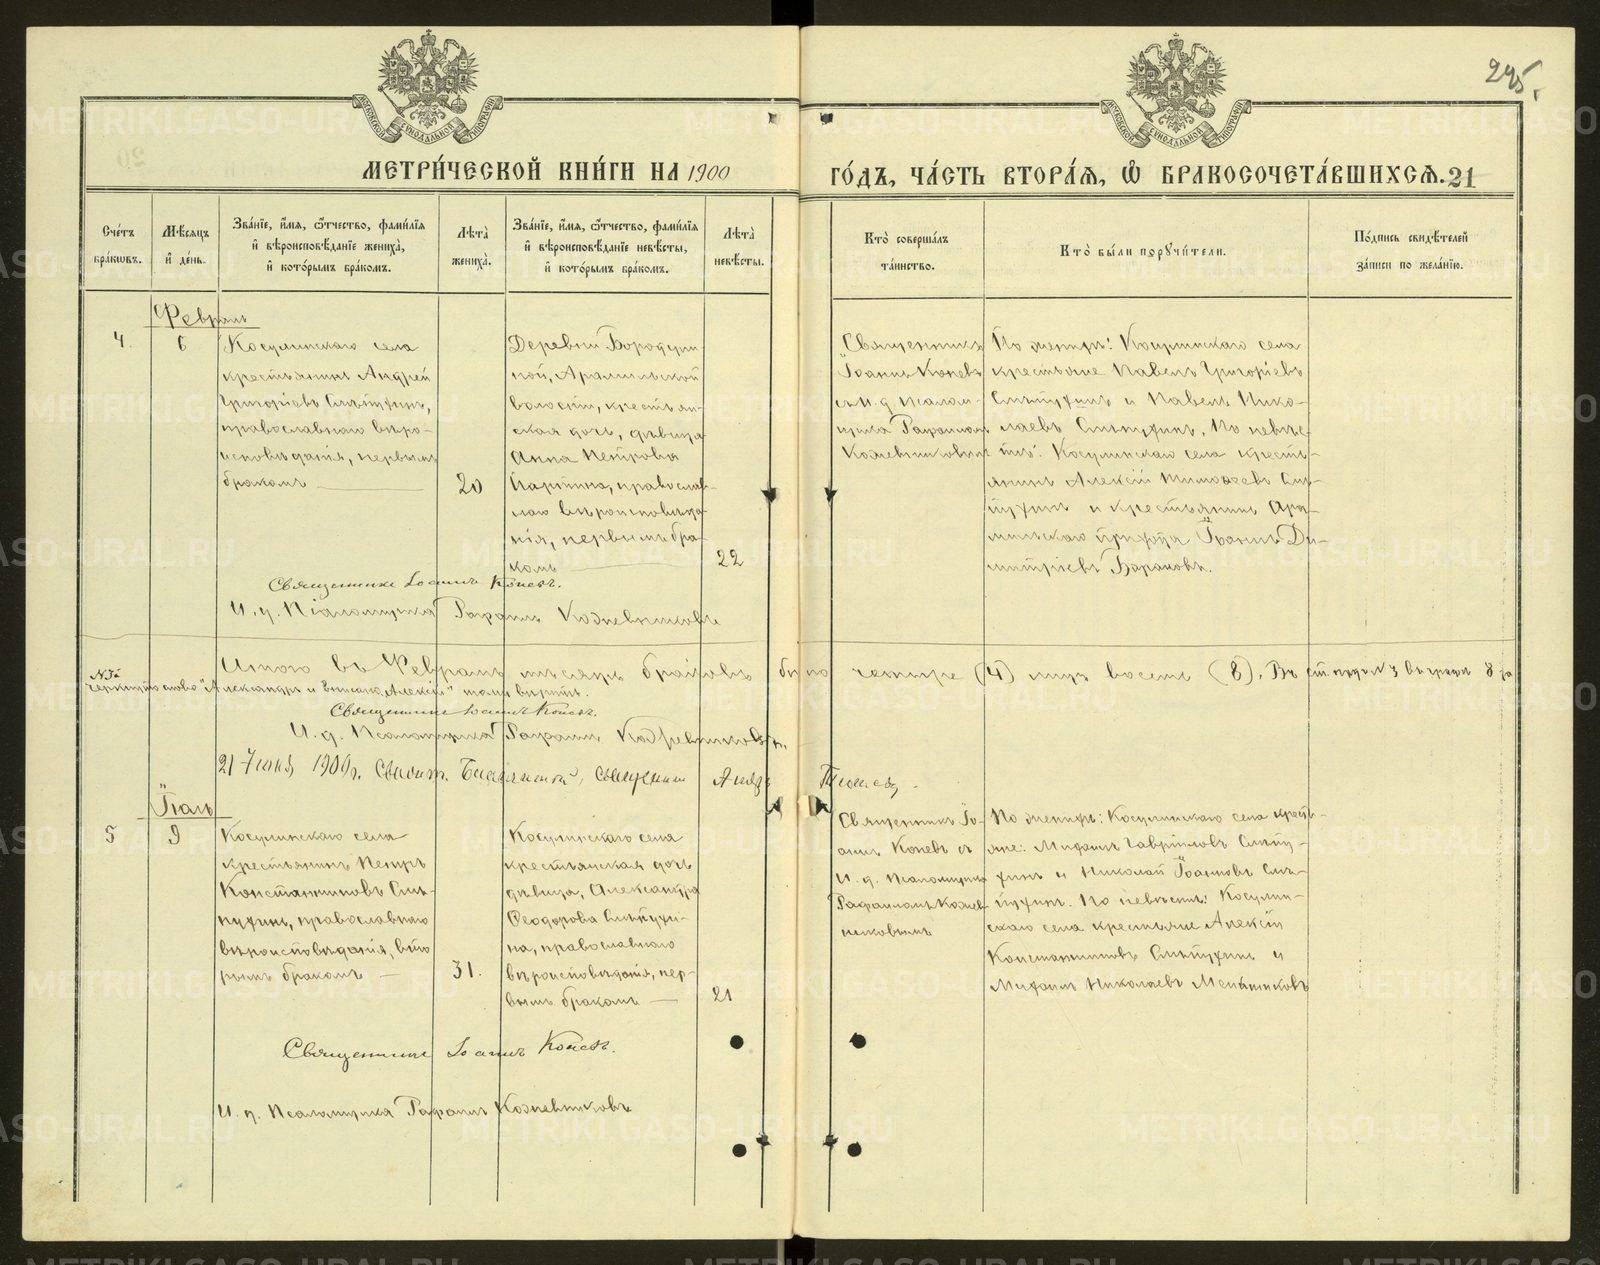 225.
МОСКОВСКОЙ СѴНОДАЛЬНОЙ ТИПОГРАФІИ
МОСКОВСКОЙ СѴНОДАЛЬНОЙ ТИПОГРАФІИ
МЕТРИ́ЧЕСКОЙ КНИ́ГИ НА 1900 ГО́ДЪ, ЧА́СТЬ ВТОРА́Ѧ, Ѽ БРАКОСОЧЕТА́ВШИХСѦ. 21
Сче́тъ бра́кѡвъ.
Мѣ́сяцъ и҆ де́нь.
Зва́нїе, и҆́мѧ, ѻ҆́тчество, фами́лїѧ и҆ вѣроисповѣ́данїе жениха̀, и҆ кото́рымъ бра́комъ.
Лѣта̀ жениха̀.
Зва́нїе, и҆́мѧ, ѻ҆́тчество, фами́лїѧ и҆ вѣроисповѣ́данїе невѣ́сты, и҆ кото́рымъ бра́комъ.
Лѣта̀ невѣ́сты.
Кто̀ соверша́лъ та́инство.
Кто̀ бы́ли порꙋчи́тели.
По́дпись свидѣ́телей за́писи по жела́нїю.
Февраль
4. 6
Косулинскаго села
крестьянинъ Андрей
Григоріевъ Слѣпухинъ,
православнаго вѣро-
исповѣданія, первымъ
бракомъ
20
Деревни Бородули-
ной, Арамильской
волости, крестьян-
ская дочь, дѣвица
Анна Петрова
православ-
наго вѣроисповѣда-
нія, первымъ бра-
комъ
22
Священникъ
Іоаннъ Коневъ
съ и. д. псалом-
щика Рафаиломъ
Кожевниковымъ
По женихѣ: Косулинскаго села
крестьяне Павелъ Григоріевъ
Слѣпухинъ и Павелъ Нико-
лаевъ Слѣпухинъ. По невѣс-
тѣ: Косулинскаго села кресть-
янинъ Алексій Тимоѳеевъ Слѣ-
пухинъ и крестьянинъ Ара-
мильскаго Іоаннъ Ди-
митріевъ Барановъ.
Священникъ Іоаннъ Коневъ.
И. д. Псаломщика Рафаилъ Кожевниковъ
Итого въ Февралѣ мѣсяцѣ браковъ было четыре (4) лицъ восемь (8). Въ ст. № 3 въ графѣ 8 за
№ 3й
черкнуто слово "Александръ и вписано Алексій" тому вѣрить.
Священникъ Іоаннъ Коневъ.
И. д. Псаломщика Рафаилъ Кожевниковъ.
21 Іюня 1900 г. Священникъ
Іюль
5 9
Косулинскаго села
крестьянинъ Петръ
Константиновъ Слѣ-
пухинъ, православнаго
вѣроисповѣданія, вто
рымъ бракомъ —
31.
Косулинскаго села
крестьянская дочь
дѣвица, Александра
Ѳеодорова Слѣпухи-
на, православнаго
вѣроисповѣданія, пер-
вымъ бракомъ —
21
Священникъ Іо-
аннъ Коневъ съ
и. д. псаломщика
Рафаиломъ Кожев-
никовымъ
По женихѣ: Косулинскаго села кресть-
яне: Михаилъ Гавріиловъ Слѣпу-
хинъ и Николай Іоанновъ Слѣ-
пухинъ. По невѣстѣ: Косулин-
скаго села крестьяне Алексій
Константиновъ Слѣпухинъ и
Михаилъ Николаевъ Меньшиковъ
Священникъ Іоаннъ Коневъ.
И. д. Псаломщика Рафаилъ Кожевниковъ
METRIKI.GASO-URAL.RU